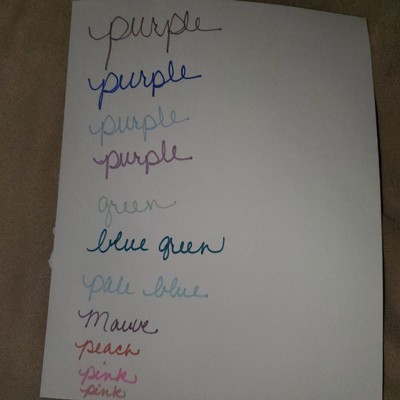 purple
purple
purple
purple
green
blue green
pale blue
Mauve
peach
pink
pink